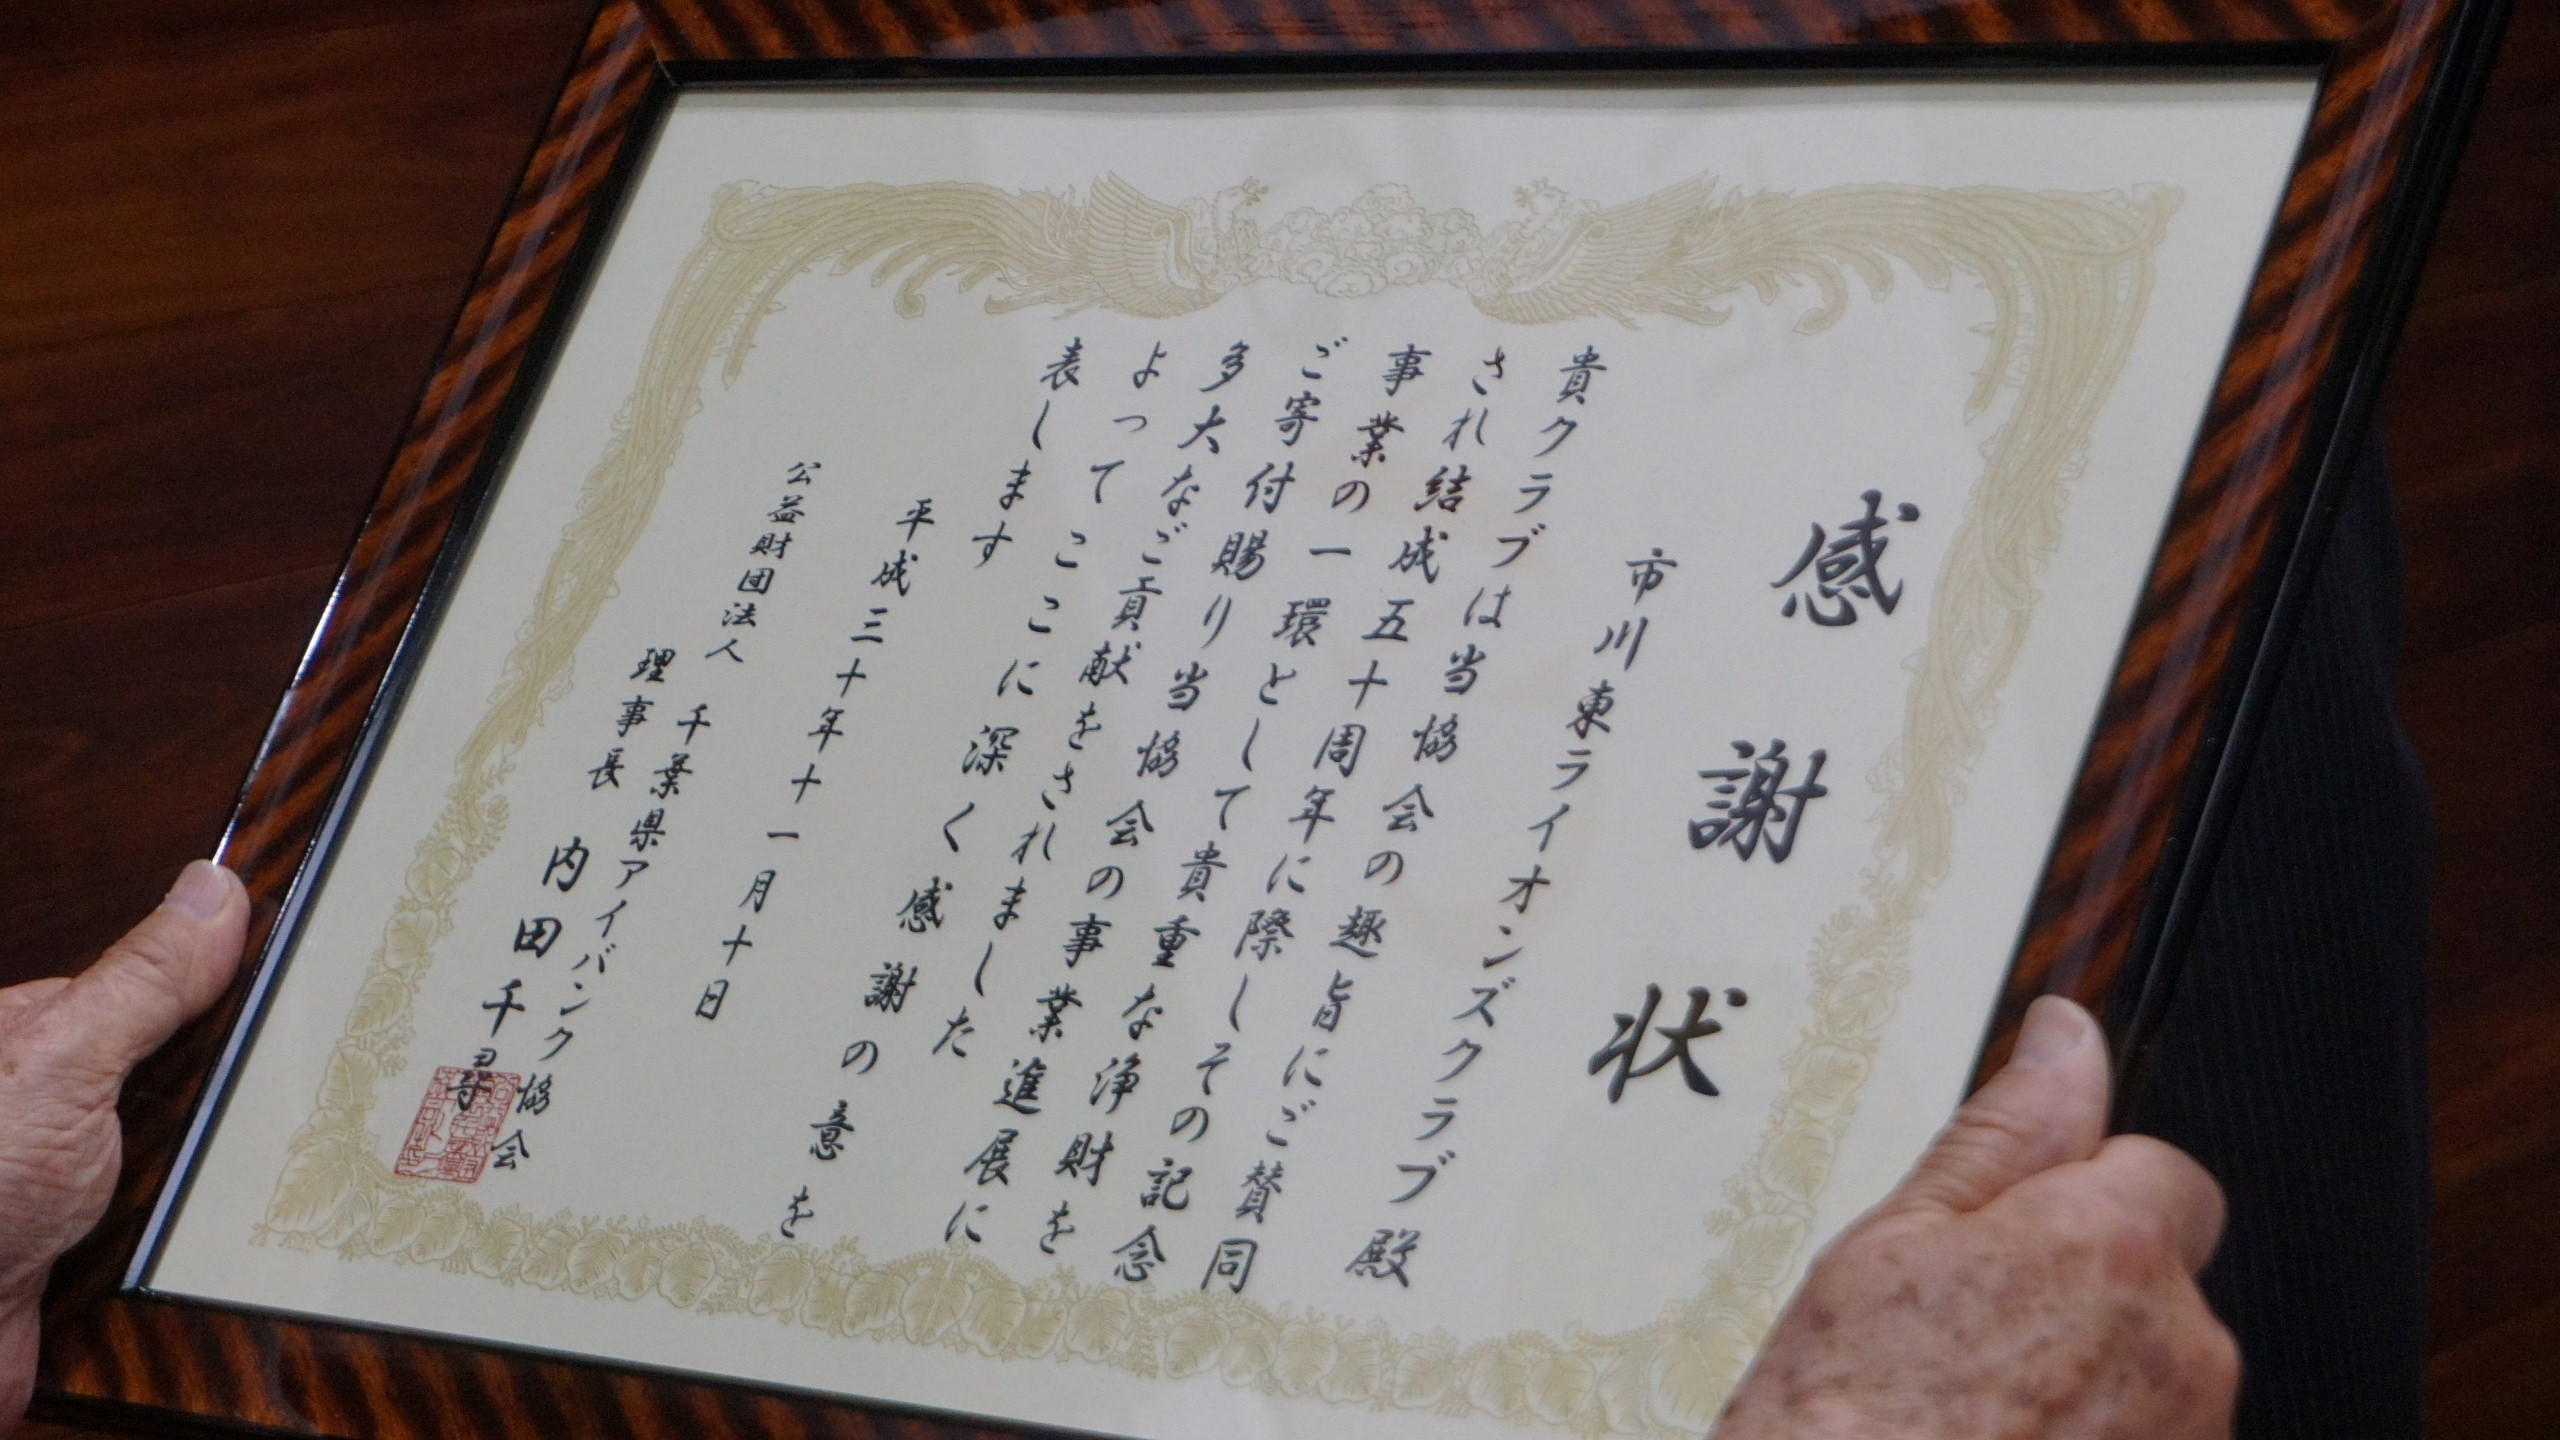 感謝状
市川東ライオンズクラブ殿
貴クラブは当協会の趣旨にご賛同
され結成五十周年に際しその記念
事業の一環として貴重な浄財を
ご寄付賜り当協会の事業進展に
多大なご貢献をされました
よってここに深く感謝の意を
表します
平成三十年十一月十日
公益財団法人 千葉県アイバンク協会
理事長 内田千尋